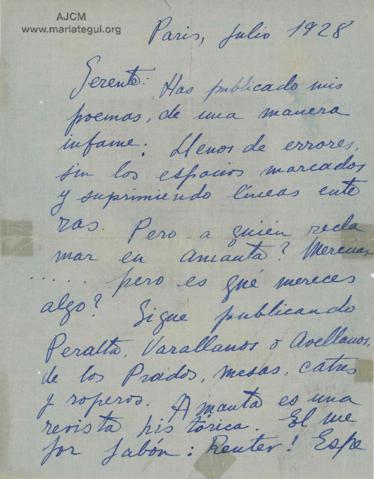 AJCM
www.mariategui.org
Paris, Julio 1928
Gerente: Has publicado mis
poemas, de una manera
infame: Llenos de errores,
sin los espacios marcados
y suprimiendo líneas ente
ras. Pero a quién recla
mar en Amauta? Mereces
..... pero es qué mereces
algo? Sigue publicando
Peralta, Varallanos o Avellanos,
de los Prados, mesas, catres
y roperos. Amauta es una
revista histórica. El me
jor jabón: Reuter! Espe